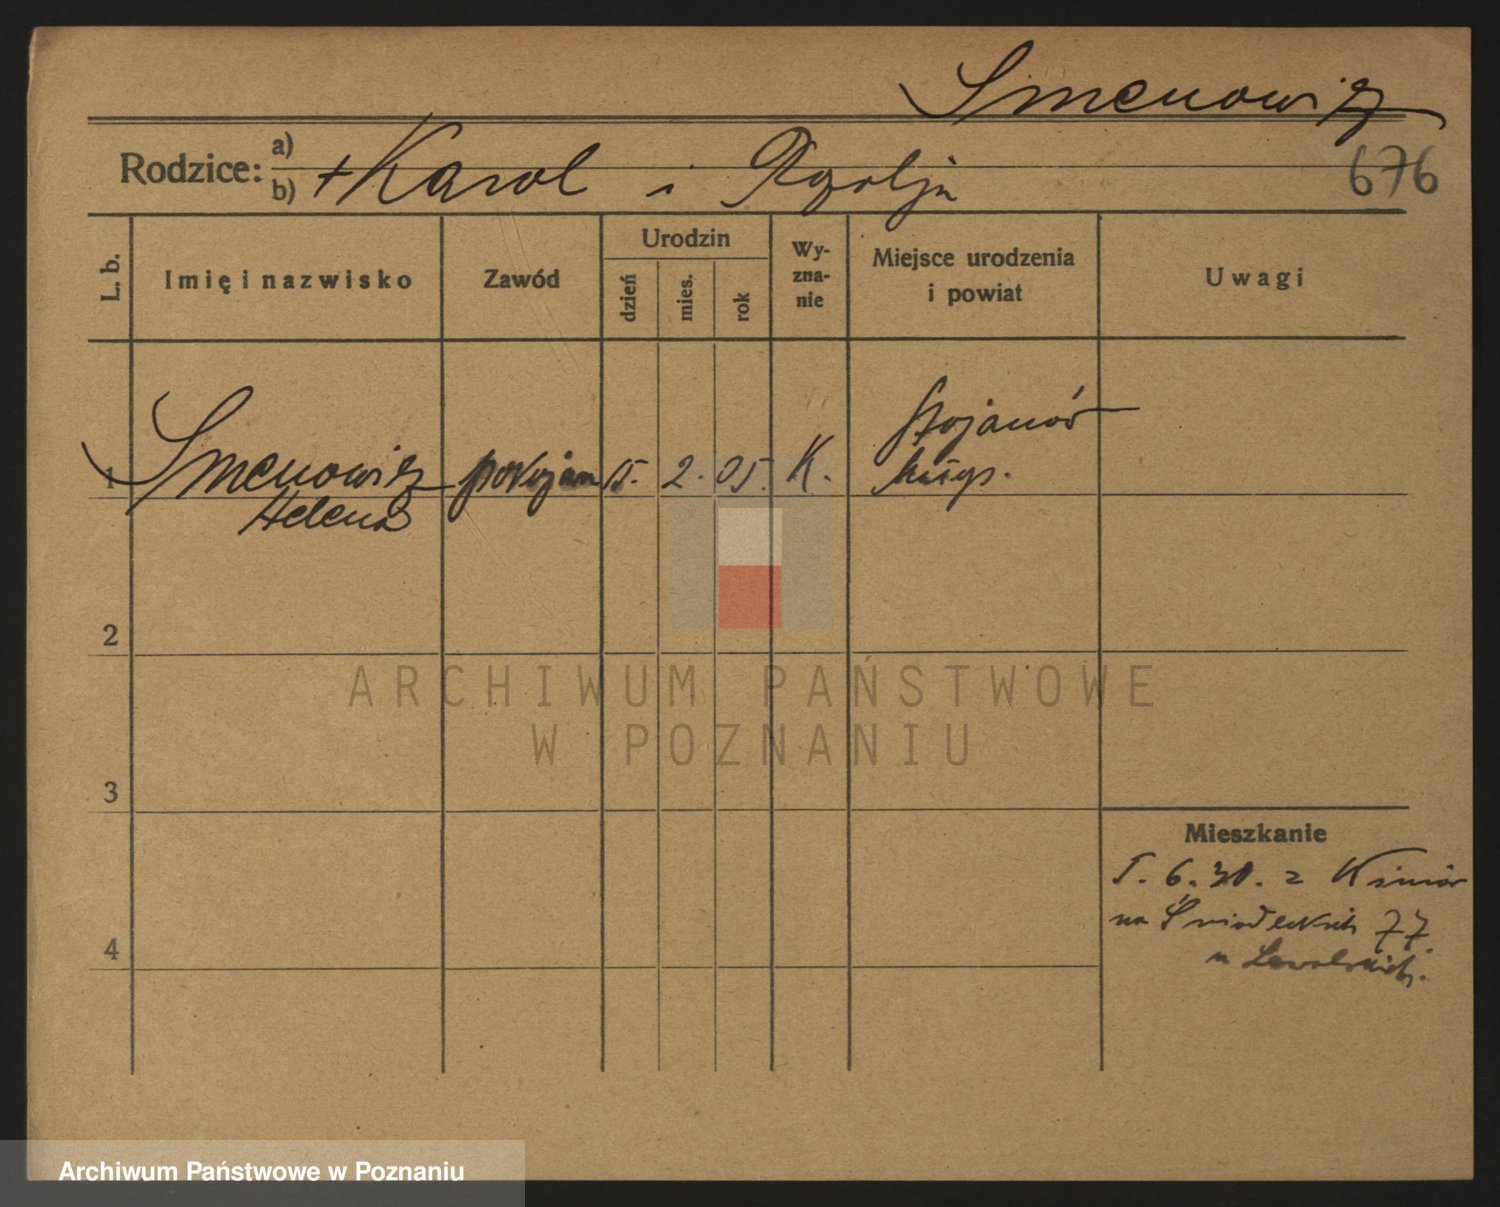 Smenowicz
Rodzice: a) b) + Karol i Rozalja
676
L. b.
Imię i nazwisko
Zawód
Urodzin
dzień
mies.
rok
Wy-
zna-
nie
Miejsce urodzenia
i powiat
Uwagi
1 Smenowicz pokojow. 15. 2. 05. K. Stojanów
Helena
2
3
4
Mieszkanie
5. 6. 30. z
na Śniadeckich 77
u
ARCHIWUM PAŃSTWOWE
W POZNANIU
Archiwum Państwowe w Poznaniu